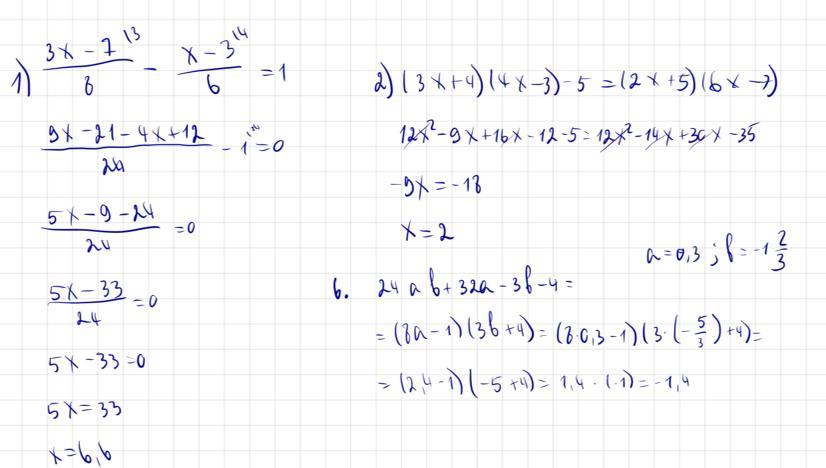 1) (3x-7)/8 |3 - (x-3)/6 |4 = 1
(9x-21-4x+12)/24 - 1 |24 = 0
(5x-9-24)/24 = 0
(5x-33)/24 = 0
5x-33=0
5x=33
x=6,6
2) (3x+4)(4x-3)-5=(2x+5)(6x-7)
12x²-9x+16x-12-5=12x²-14x+30x-35
-9x=-18
x=2
a=0,3; b=-1 2/3
6. 24ab+32a-3b-4=
=(8a-1)(3b+4)=(8·0,3-1)(3·(-5/3)+4)=
=(2,4-1)(-5+4)=1,4·(-1)=-1,4